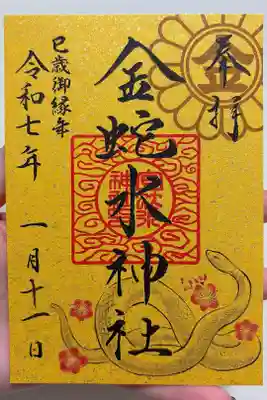 奉拝
金
金蛇水神社
巳歳御縁年
令和七年 一月十一日